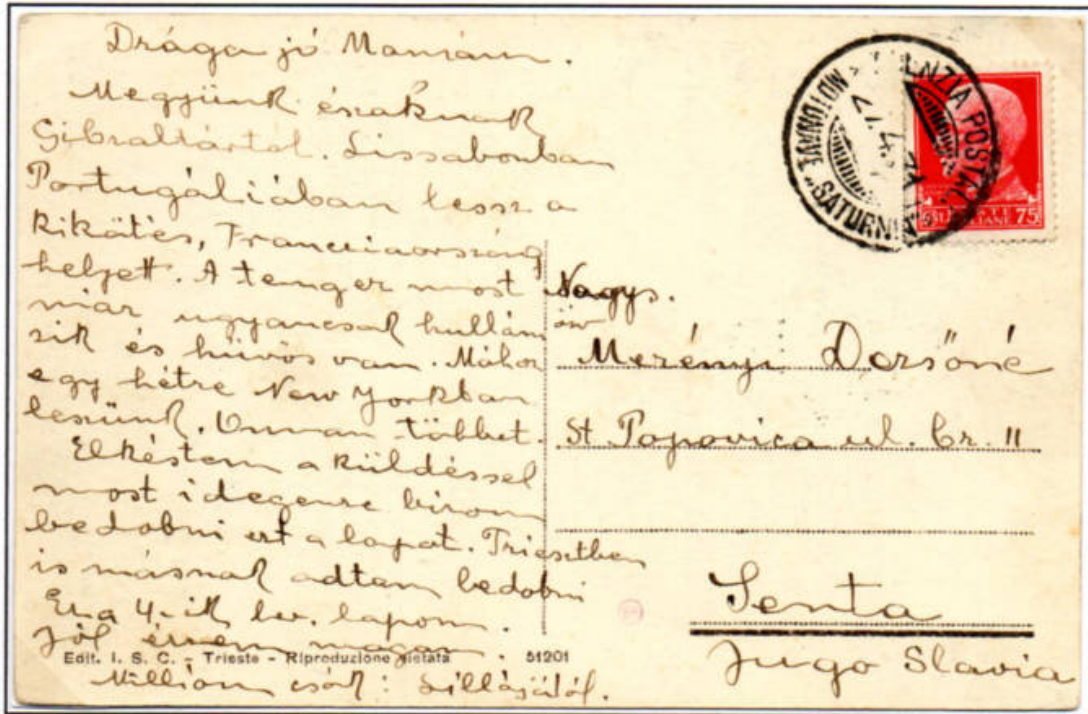 Drága jó Mamám.
Megyünk északnak
Gibraltártól. Lissabonban
Portugáliában lessz a
kikötés, Franciaország
helyett. A tenger most
már ugyancsak hullám
zik és hűvös van. Mához
egy hétre New Yorkban
leszünk. Onnan többet.
Elkéstem a küldéssel
most idegenre bizom
bedobni ezt a lapat. Triesztben
is másnak adtam bedobni
Ez a 4-ik lev. lapom.
Jól érzem magam
Millióm csók: Lillájától.
Edit. I. S. C. - Trieste - Riproduzione vietata 51201
AGENZIA POSTAL
MOTONAVE "SATURNIA"
75
Nagys.
Merényi Dezsőné
St Popovica ul. br. 11
Senta
Jugo Slavia